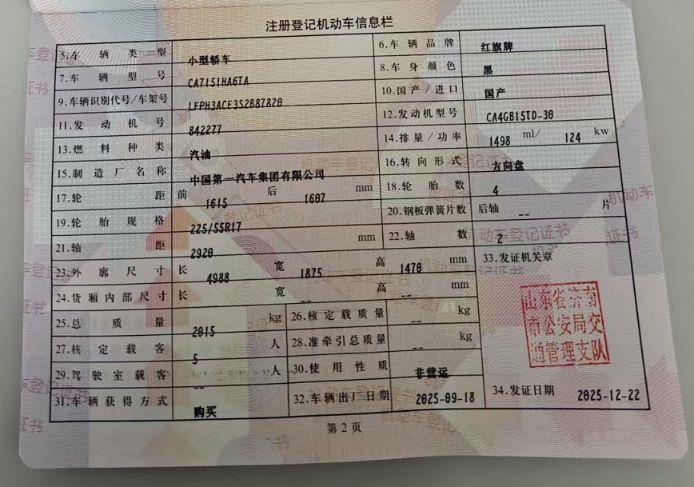 注册登记机动车信息栏
5.车辆类型 小型轿车 6.车辆品牌 红旗牌
7.车辆型号 CA7151HA6TA 8.车身颜色 黑
9.车辆识别代号/车架号 LFPH3ACE3S2B87820 10.国产/进口 国产
11.发动机号 842277 12.发动机型号 CA4GB15TD-30
13.燃料种类 汽油 14.排量/功率 1498 ml/ 124 kw
15.制造厂名称 中国第一汽车集团有限公司 16.转向形式 方向盘
17.轮距 前 1615 后 1607 mm 18.轮胎数 4
19.轮胎规格 225/55R17 20.钢板弹簧片数 后轴 -- 片
21.轴距 2920 mm 22.轴数 2
23.外廓尺寸 长 4988 宽 1875 高 1470 mm 33.发证机关章
24.货厢内部尺寸 长 -- 宽 -- 高 -- mm
25.总质量 2015 kg 26.核定载质量 -- kg
27.核定载客 5 人 28.准牵引总质量 -- kg
29.驾驶室载客 -- 人 30.使用性质 非营运
31.车辆获得方式 购买 32.车辆出厂日期 2025-09-18 34.发证日期 2025-12-22
山东省济南
市公安局交
通管理支队
第2页